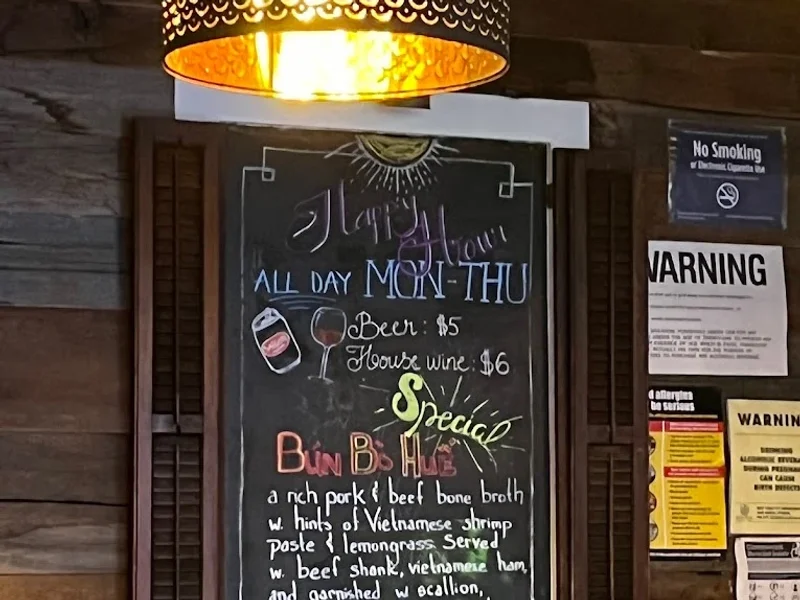 Happy
Hour
ALL DAY MON-THU
Beer: $5
House wine: $6
Special
Bún Bò Huế
a rich pork & beef bone broth
w. hints of Vietnamese shrimp
paste & lemongrass Served
w. beef shank, vietnamese ham,
and garnished w scallion,
No Smoking
or Electronic Cigarette Use
WARNING
d allergies
be serious
WARNIN
DRINKING
ALCOHOLIC BEVERA
DURING PREGNAN
CAN CAUSE
BIRTH DEFECTS